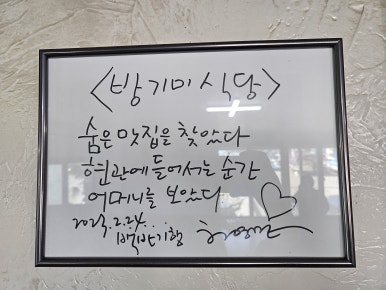 <방기미식당>
숨은 맛집을 찾았다
현관에 들어서는 순간
어머니를 보았다
2023.2.24.
백반기행